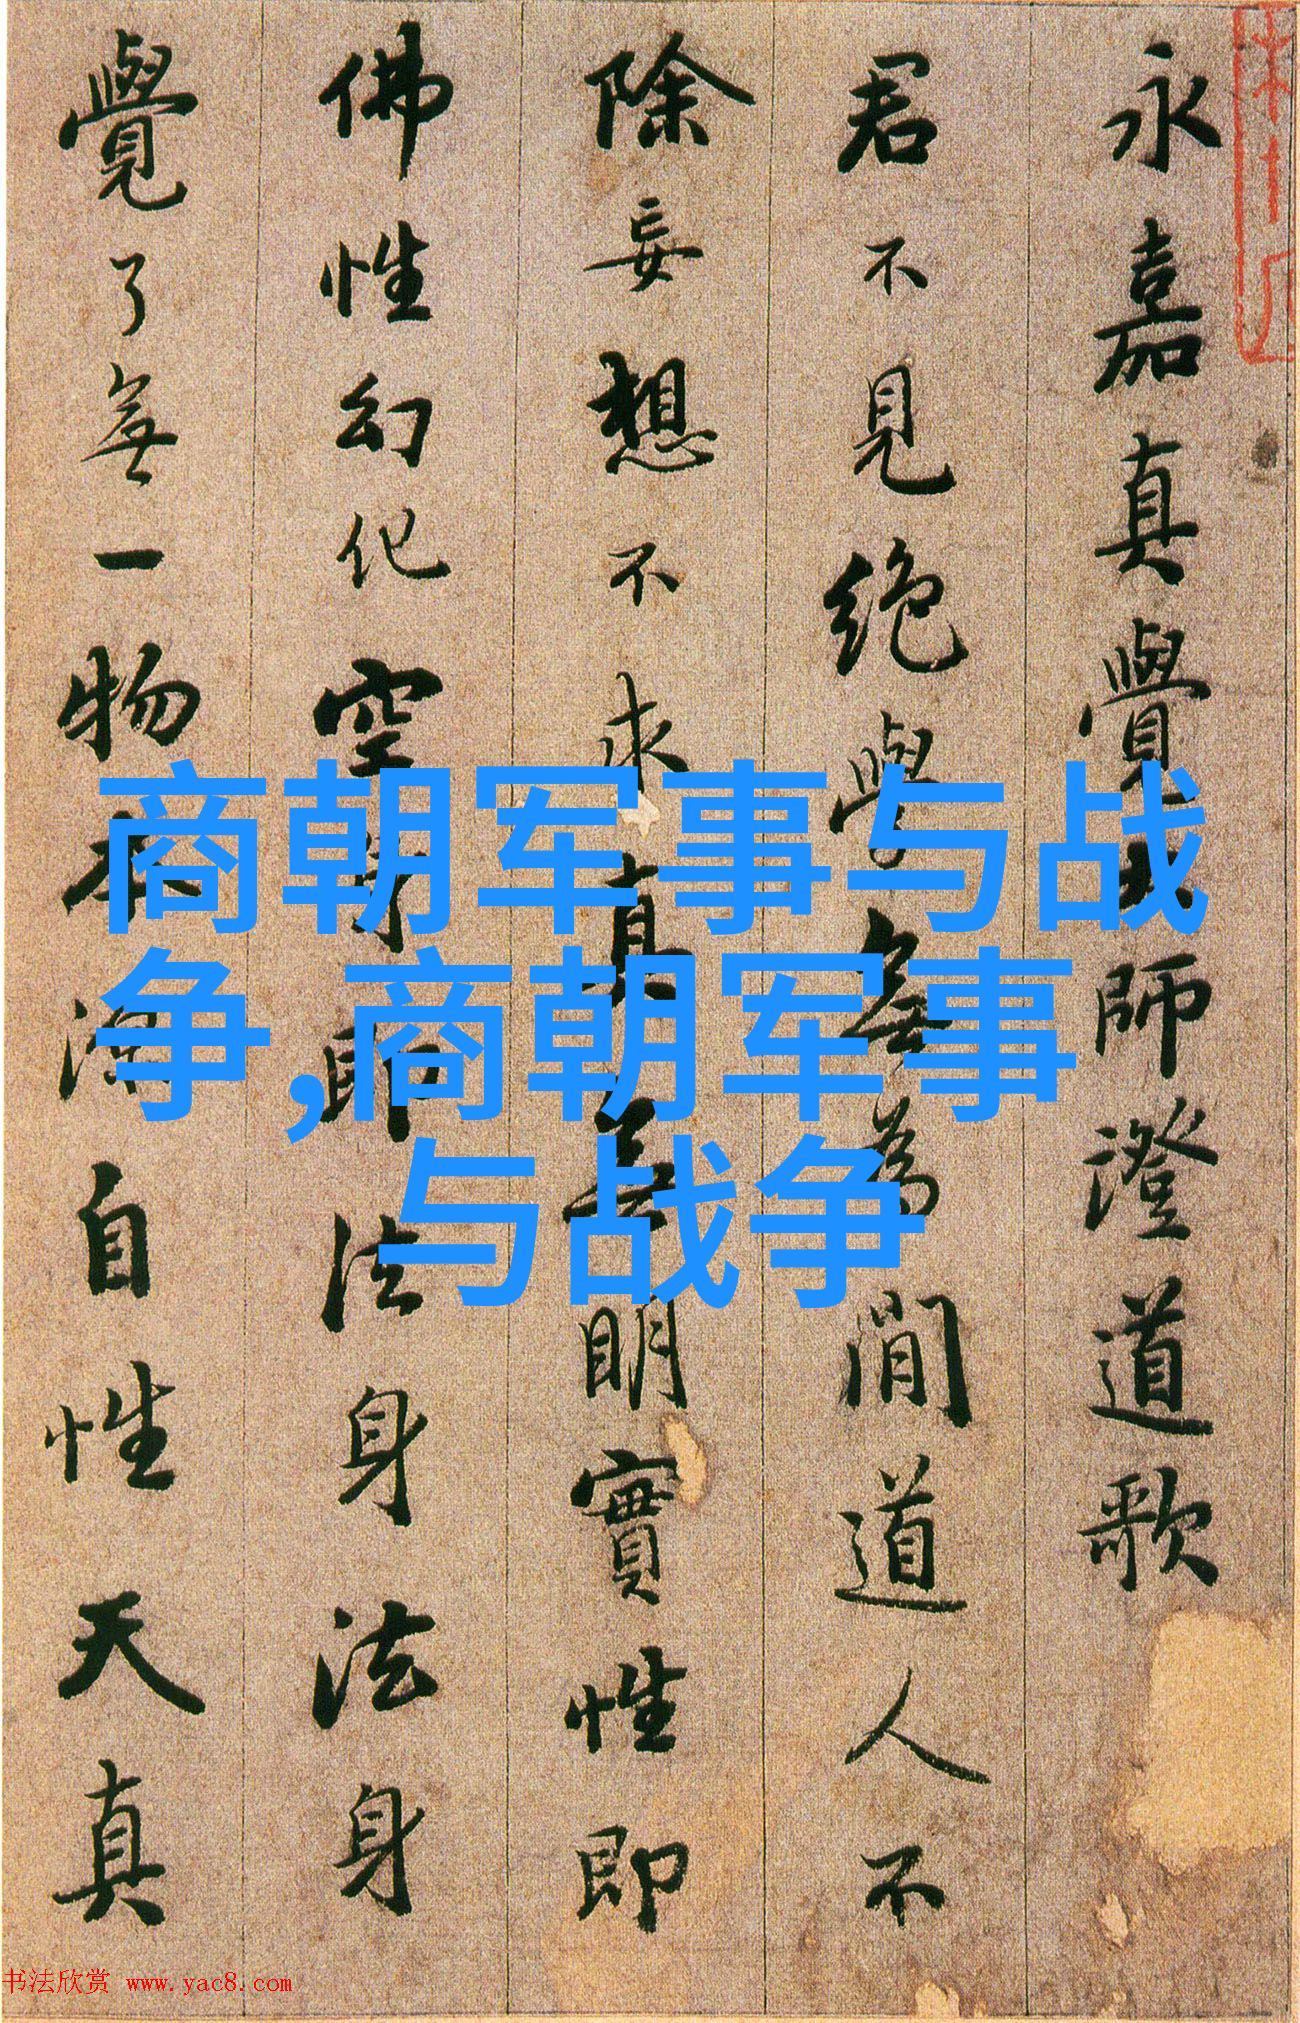 永嘉真覺大師澄道歌
君不見絕學無為閒道人不
除妄想不求真無明實性即
佛性幻化空身即法身法身
覺了無一物本源自性天真
商朝军事与战
争,商朝军事
与战争
书法欣赏 www.yac8.com